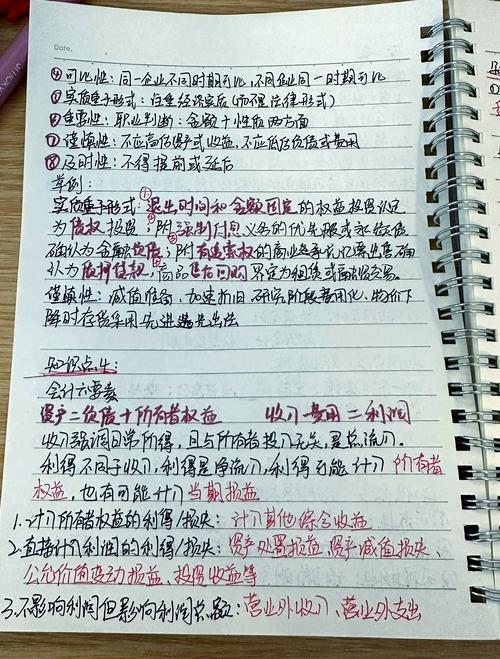 Date.
④可比性：同一企业不同时期可比，不同企业同一时期可比
⑤实质重于形式：注重经济实质（而非法律形式）
⑥重要性：职业判断：金额+性质两方面
⑦谨慎性：不应高估资产或收益，不应低估负债或费用
⑧及时性：不得提前或延后
举例：
实质重于形式：①退出时间和金额固定的权益投资认定
为债权投资；②附强制付息义务的优先股或永续债
确认为金融负债；③附有追索权的商业承兑汇票出售确
认为质押借款，④商品售后回购界定为租赁或融资交易。
谨慎性：减值准备，加速折旧，研究阶段费用化，物价下
降时存货采用先进先出法
知识点4：
会计六要素
资产=负债+所有者权益 收入-费用=利润
收入强调日常所得，且与所有者投入无关，是总流入。
利得不同于收入，利得是净流入，利得可能计入 所有者
权益，也有可能计入当期损益
1.计入所有者权益的利得/损失：计入其他综合收益
2.直接计入利润的利得/损失：资产处置损益，资产减值损失，
公允价值变动损益，投资收益等
3.不影响利润但影响利润总额：营业外收入、营业外支出